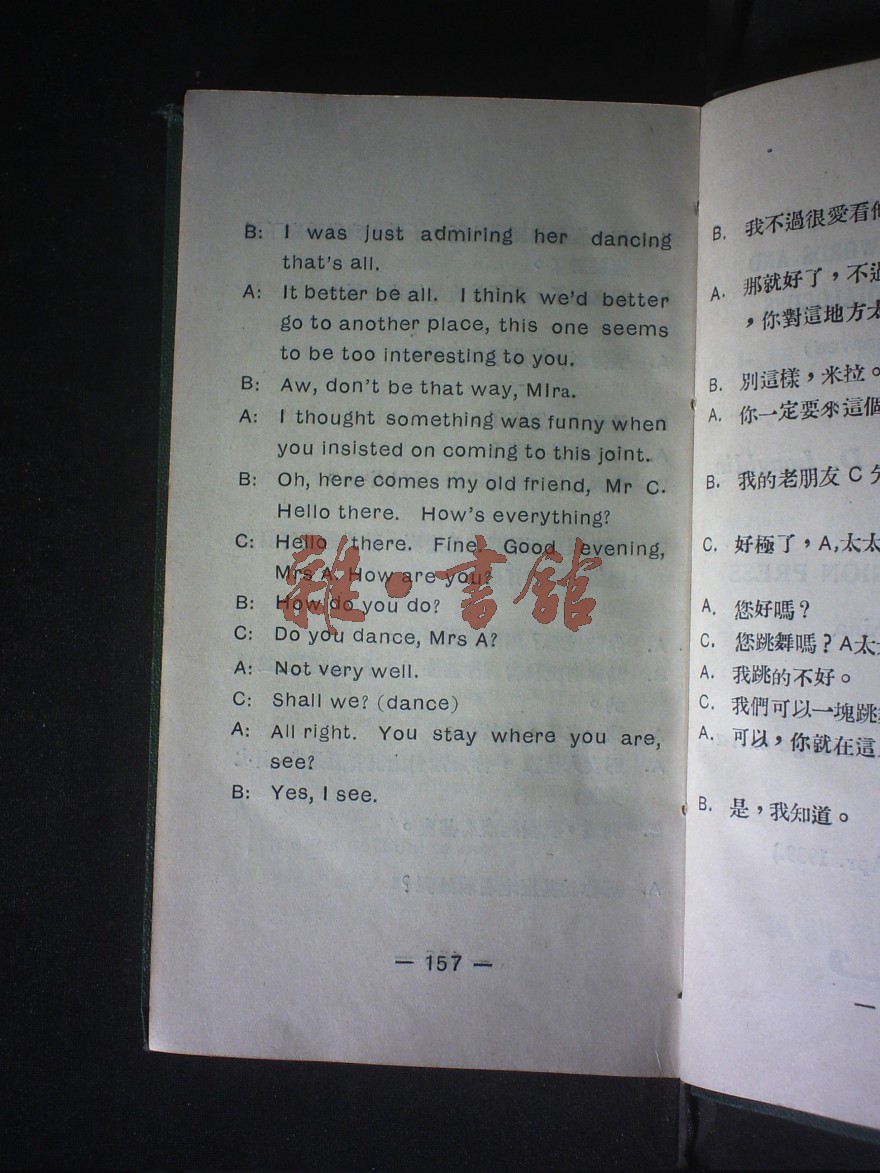 B: I was just admiring her dancing
that's all.
A: It better be all. I think we'd better
go to another place, this one seems
to be too interesting to you.
B: Aw, don't be that way, MIra.
A: I thought something was funny when
you insisted on coming to this joint.
B: Oh, here comes my old friend, Mr C.
Hello there. How's everything?
C: Hello there. Fine. Good evening,
Mrs A. How are you?
B: How do you do?
C: Do you dance, Mrs A?
A: Not very well.
C: Shall we? (dance)
A: All right. You stay where you are,
see?
B: Yes, I see.
— 157 —
B. 我不過很愛看
A. 那就好了，不過
，你對這地方太
B. 別這樣，米拉。
A. 你一定要來這個
B. 我的老朋友 C
C. 好極了，A,太太
A. 您好嗎？
C. 您跳舞嗎？A太
A. 我跳的不好。
C. 我們可以一塊跳
A. 可以，你就在這
B. 是，我知道。
雜·書館